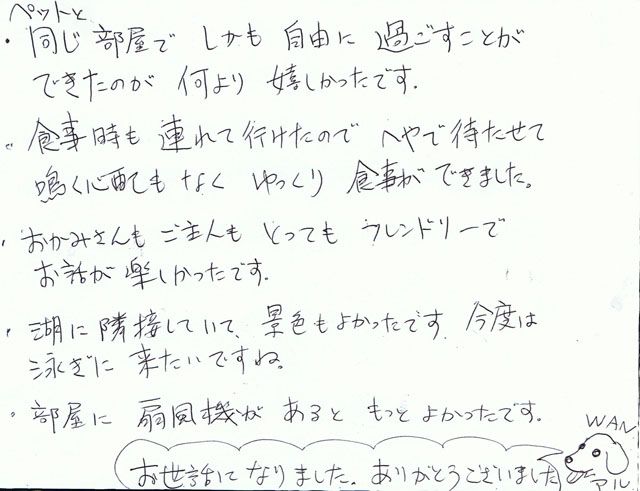 ペットと
・同じ部屋で しかも 自由に 過ごすことが
できたのが 何より 嬉しかったです.
・食事時も 連れて行けたので へやで待たせて
鳴く心配もなく ゆっくり 食事ができました。
・おかみさんも ご主人も とっても フレンドリーで
お話が 楽しかったです.
・湖に 隣接していて、景色もよかったです. 今度は
泳ぎに 来たいですね。
・部屋に 扇風機が あると もっと よかったです.
WAN
お世話になりました。ありがとうございました
アル